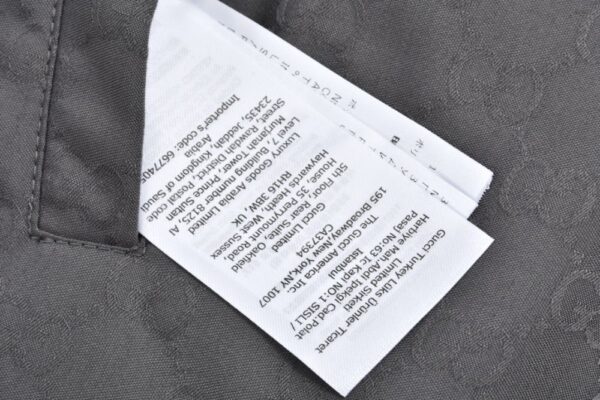 Gucci Turkey Lüks Ürünler Ticaret
Limited Sirketi
Harbiye Mah.Abdi Ipekgi Cad.Polat
Pasaj No:63 Ic Kapi NO:1 SISLI /
Istanbul
The Gucci America Inc.
195 Broadway,New York,NY 1007
CA37394
Gucci Limited
5th Floor, Rear Suite, Oakfield
House, 35 Perrymount Road,
Haywards Heath, West Sussex
RH16 3BW, UK.
Luxury Goods Arabia Limited
Level 7, Building number 8125, Al
Murjanah Tower, Prince Sultan
Street, Rawdah District, Postal code
23435, Jeddah, Kingdom of Saudi
Arabia
Importer's code: 6677405